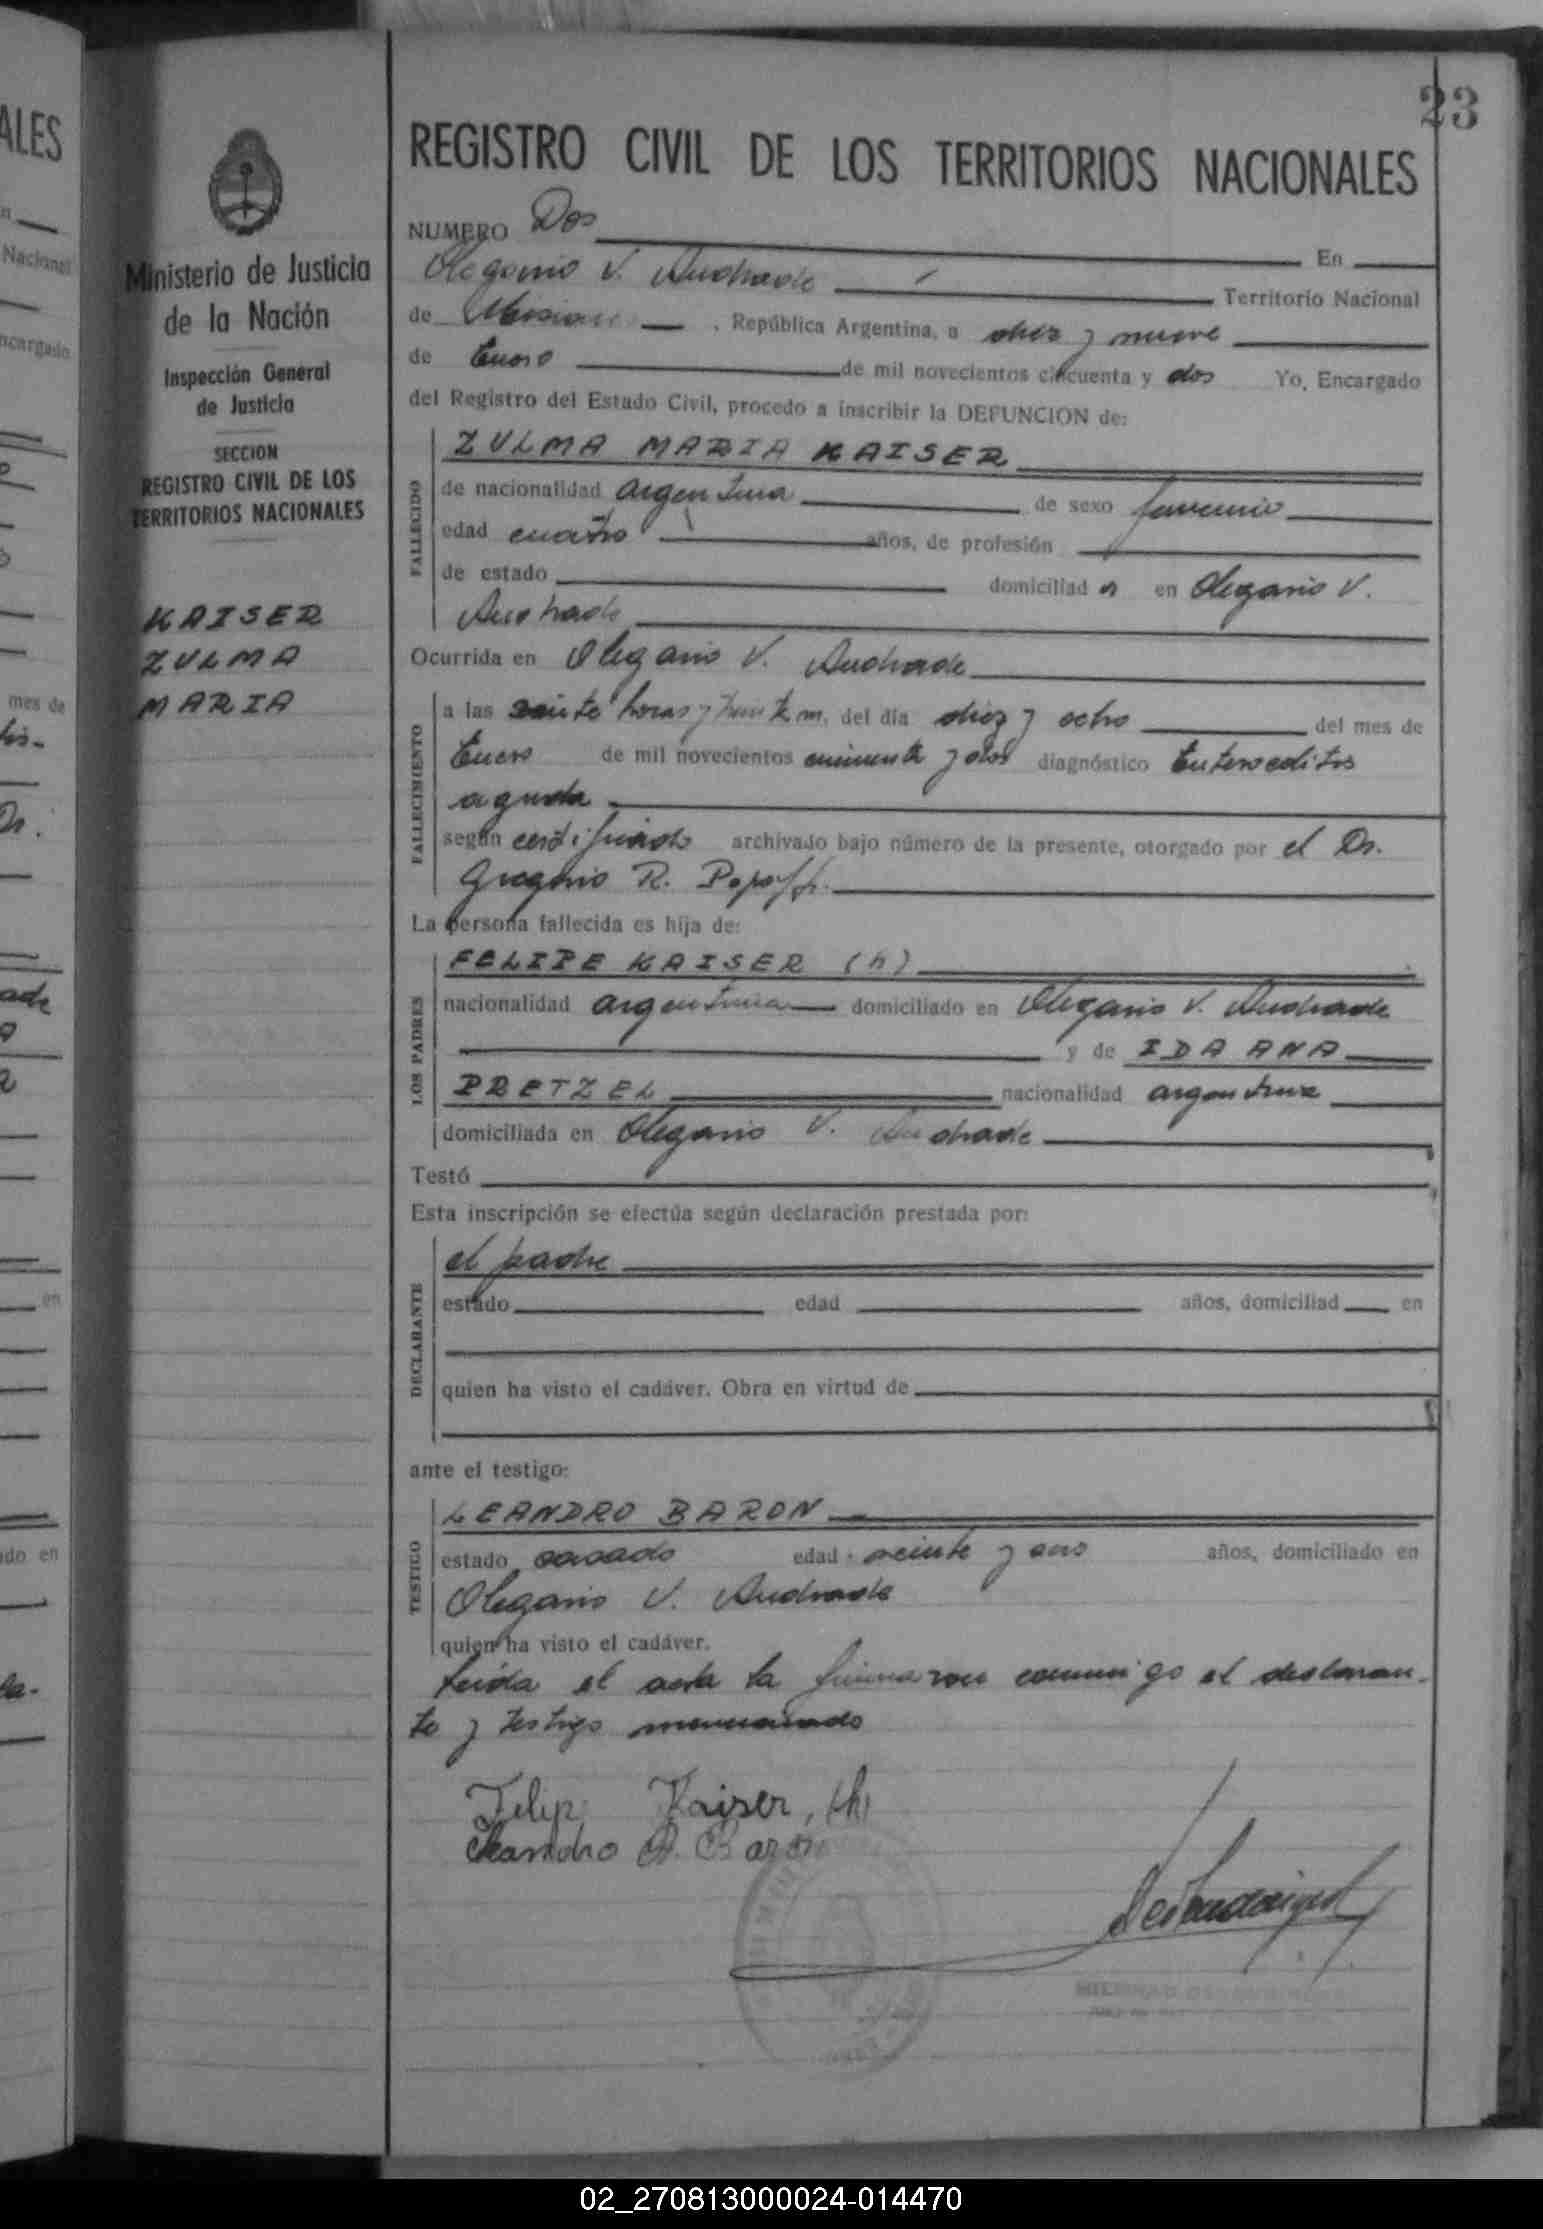 23
ALES
Nacional
ncargado
mes de
Dr.
en
Ministerio de Justicia
de la Nación
Inspección General
de Justicia
SECCION
REGISTRO CIVIL DE LOS
TERRITORIOS NACIONALES
KAISER
ZULMA
MARIA
REGISTRO CIVIL DE LOS TERRITORIOS NACIONALES
NUMERO Dos En
Olegario V. Andrade Territorio Nacional
de Misiones , República Argentina, a diez y nueve
de Enero de mil novecientos cincuenta y dos Yo, Encargado
del Registro del Estado Civil, procedo a inscribir la DEFUNCION de:
FALLECIDO
ZULMA MARIA KAISER
de nacionalidad argentina de sexo femenino
edad cuatro años, de profesión
de estado domiciliad a en Olegario V.
Andrade
Ocurrida en Olegario V. Andrade
FALLECIMIENTO
a las veinte horas y treinta m. del día diez y ocho del mes de
Enero de mil novecientos cincuenta y dos diagnóstico Enterocolitis
aguda
según certificado archivado bajo número de la presente, otorgado por el Dr.
Gregorio R. Popoff.
La persona fallecida es hija de:
LOS PADRES
FELIPE KAISER (h)
nacionalidad argentina domiciliado en Olegario V. Andrade
y de IDA ANA
PRETZEL nacionalidad argentina
domiciliada en Olegario V. Andrade
Testó
Esta inscripción se efectúa según declaración prestada por:
DECLARANTE
el padre
estado edad años, domiciliad en
quien ha visto el cadáver. Obra en virtud de
ante el testigo:
TESTIGO
LEANDRO BARON
estado casado edad veinte y años, domiciliado en
Olegario V. Andrade
quien ha visto el cadáver.
Leída el acta la firmaron conmigo el declaran-
te y testigo mencionado
Felipe Kaiser, (h)
Leandro A. Baron
02_270813000024-014470